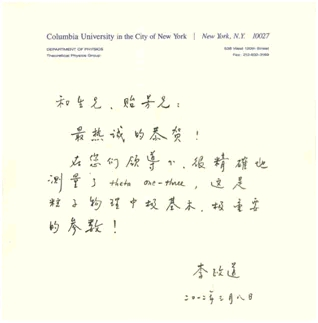 Columbia University in the City of New York | New York, N.Y. 10027
DEPARTMENT OF PHYSICS
Theoretical Physics Group
538 West 120th Street
和生兄、贻芳兄：
最热诚的恭贺！
在您们领导下，很精确地
测量了 theta one-three，这是
粒子物理中极基本、极重要
的参数！
李政道
二〇一二年三月八日